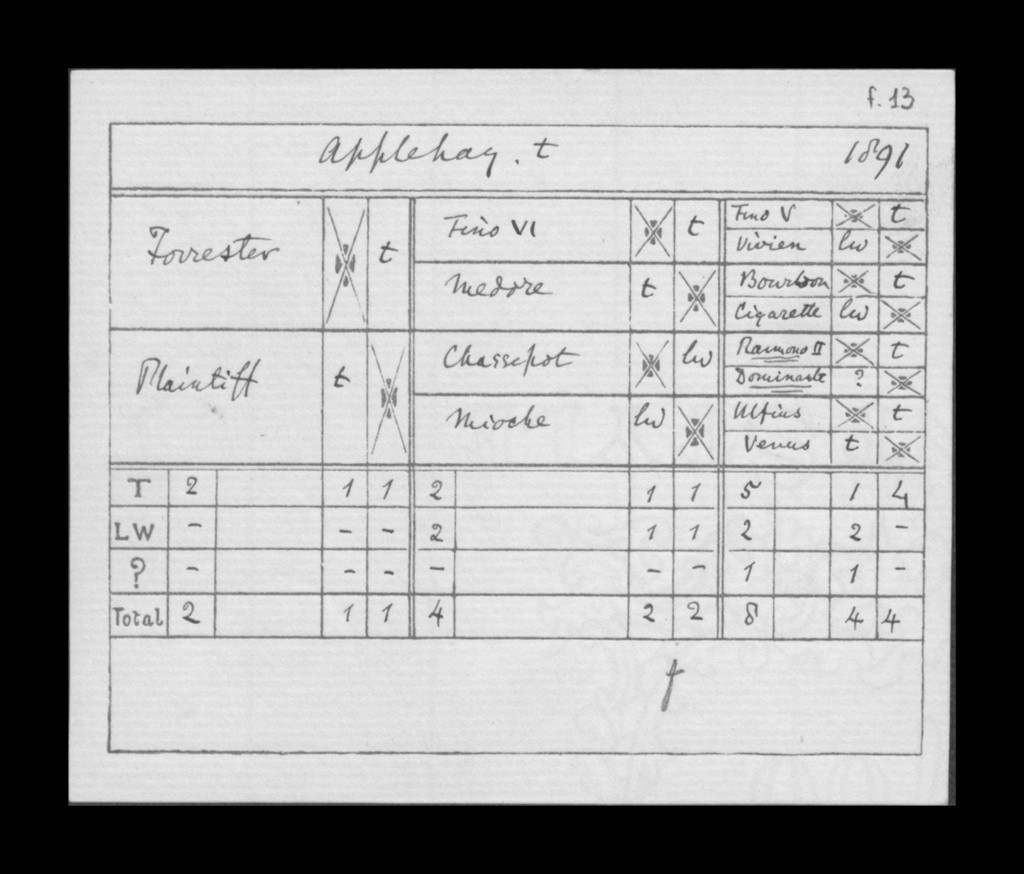 f. 13
Applehay. t 1891
Forrester t
Plaintiff t
Fino VI t
Medore t
Chassepot lw
Mioche lw
Fino V t
Vivien lw
Bourbon t
Cigarette lw
Ramono II t
Dominante ?
Ulfius t
Venus t
T 2 1 1 2 1 1 5 1 4
LW - - - 2 1 1 2 2 -
? - - - - - - 1 1 -
Total 2 1 1 4 2 2 8 4 4
f